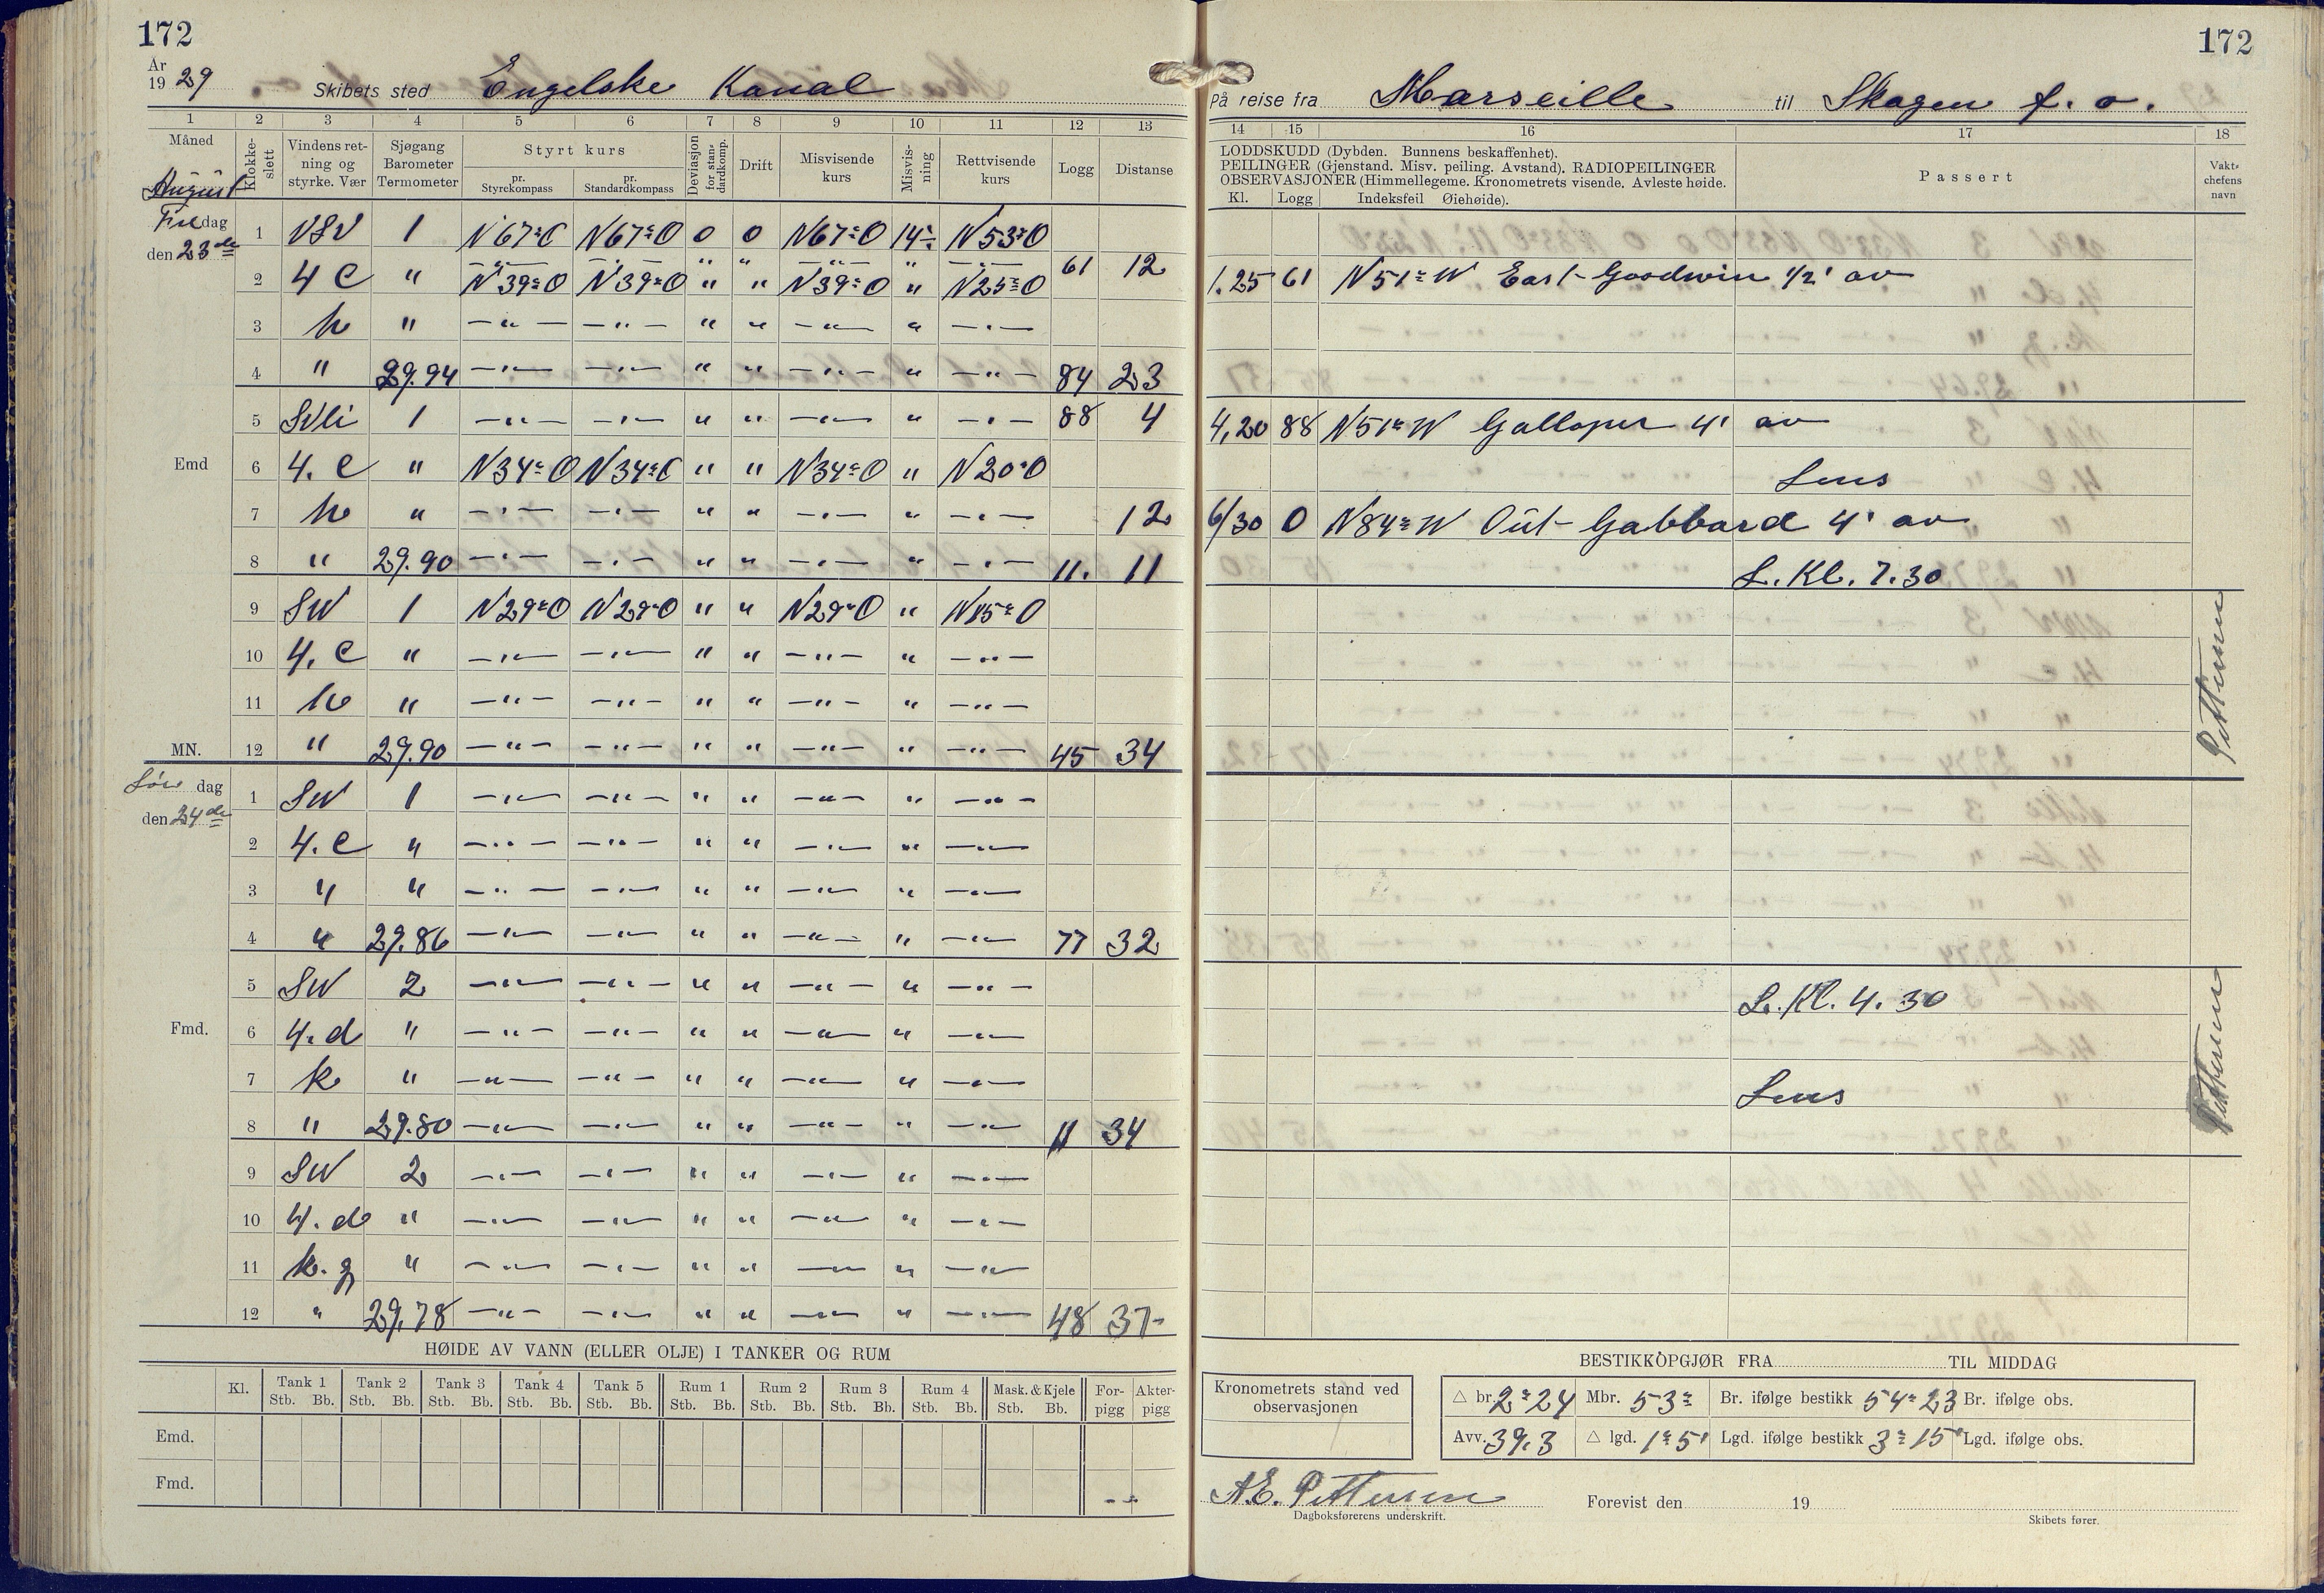 172
172
År 1929 Skibets sted Engelske Kanal
På reise fra Marseille til Skagen f. o.
1 2 3 4 5 6 7 8 9 10 11 12 13
14 15 16 17 18
Måned August
Klokkeslett
Vindens retning og styrke. Vær
Sjøgang Barometer Termometer
Styrt kurs
pr. Styrekompass
pr. Standardkompass
Deviasjon for standardkomp.
Drift
Misvisende kurs
Misvisning
Rettvisende kurs
Logg
Distanse
LODDSKUDD (Dybden. Bunnens beskaffenhet).
PEILINGER (Gjenstand. Misv. peiling. Avstand). RADIOPEILINGER
OBSERVASJONER (Himmellegeme. Kronometrets visende. Avleste høide.
Kl. Logg Indeksfeil Øiehøide).
Passert
Vaktchefens navn
Fredag den 23de
1 VSV 1 N67°O N67°O 0 0 N67°O 14÷ N53°O
2 4 C " N39°O N39°O " " N39°O " N25°O 61 12
1.25 61 N51°W East Goodwin 1/2' av
3 h " —"— —"— " " —"— " —"—
4 " 29.94 —"— —"— " " —"— " —"— 84 23
5 SVli 1 —"— —"— " " —"— " —"— 88 4
4,20 88 N51°W Galloper 4' av
Emd
6 4. C " N34°O N34°O " " N34°O " N20°O
Lens
7 h " —"— —"— " " —"— " —"— 12
6/30 0 N84°W Out Gabbard 4' av
8 " 29.90 —"— —"— " " —"— " —"— 11. 11
L. Kl. 7.30
9 SW 1 N29°O N29°O " " N29°O " N15°O
10 4. C " —"— —"— " " —"— " —"—
11 h " —"— —"— " " —"— " —"—
MN. 12 " 29.90 —"— —"— " " —"— " —"— 45 34
Pettersen
Lør dag den 24de
1 SW 1 —"— —"— " " —"— " —"—
2 4. C " —"— —"— " " —"— " —"—
3 " " —"— —"— " " —"— " —"—
4 " 29.86 —"— —"— " " —"— " —"— 77 32
5 SW 2 —"— —"— " " —"— " —"—
L. Kl. 4.30
Fmd.
6 4. d " —"— —"— " " —"— " —"—
7 k " —"— —"— " " —"— " —"—
Lens
8 " 29.80 —"— —"— " " —"— " —"— 11 34
Pettersen
9 SW 2 —"— —"— " " —"— " —"—
10 4. d " —"— —"— " " —"— " —"—
11 k. g " —"— —"— " " —"— " —"—
12 " 29.78 —"— —"— " " —"— " —"— 48 37
HØIDE AV VANN (ELLER OLJE) I TANKER OG RUM
Kl. Tank 1 Tank 2 Tank 3 Tank 4 Tank 5 Rum 1 Rum 2 Rum 3 Rum 4 Mask. & Kjele Forpigg Akterpigg
Stb. Bb. Stb. Bb. Stb. Bb. Stb. Bb. Stb. Bb. Stb. Bb. Stb. Bb. Stb. Bb. Stb. Bb. Stb. Bb.
Emd.
Fmd.
BESTIKKOPGJØR FRA TIL MIDDAG
Kronometrets stand ved observasjonen
△ br. 2°24 Mbr. 53° Br. ifølge bestikk 54°23 Br. ifølge obs.
Avv. 39.3 △ lgd. 1°5' Lgd. ifølge bestikk 3°15' Lgd. ifølge obs.
A.E. Pettersen
Dagboksførerens underskrift.
Forevist den 19
Skibets fører.